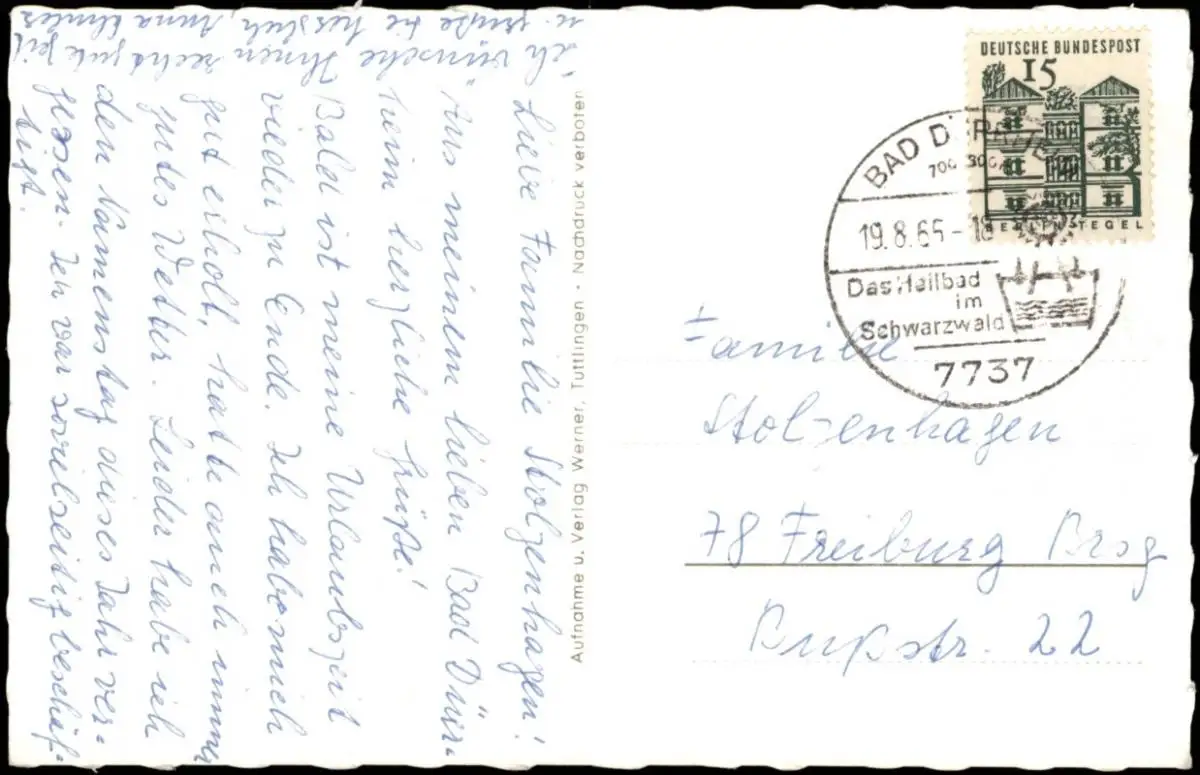 Liebe Familie Stolzenhagen!
Aus meinem lieben Bad Dürr-
heim herzliche Grüße!
Bald ist meine Urlaubszeit
wieder zu Ende. Ich habe mich
gut erholt, hatte auch immer
gutes Wetter. Leider habe ich
den Namenstag dieses Jahr ver-
gessen. Ich war soviel seitig beschäf-
tigt.
Ich wünsche Ihnen recht gute Zeit
u. grüße Sie herzlich, Anna
Aufnahme u. Verlag Werner, Tuttlingen · Nachdruck verboten
DEUTSCHE BUNDESPOST
15
BERLIN-TEGEL
BAD DÜRRHEIM
19.8.65-18
Das Heilbad
im
Schwarzwald
7737
Familie
Stolzenhagen
78 Freiburg Brsg
Bußstr. 22